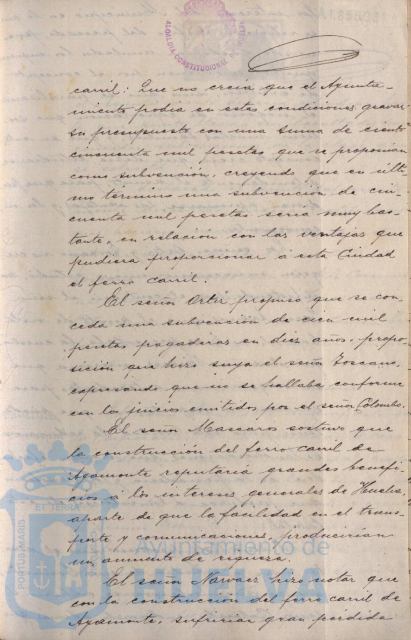 carril: Que no creia que el Ayunta-
miento podia en estas condiciones gravar
su presupuesto con una suma de ciento
cincuenta mil pesetas que se proponian
como subvención, creyendo que en últi-
mo término una subvención de cin-
cuenta mil pesetas seria muy bas-
tante, en relación con las ventajas que
pudiera proporcionar á esta Ciudad
el ferro carril.
El señor Ortiz propuso que se con-
ceda una subvención de cien mil
pesetas pagaderas en diez años, propo-
sición que hizo suya el señor Toscano,
expresando que no se hallaba conforme
con los juicios emitidos por el señor Colombo.
El señor Mascarós sostuvo que
la construcción del ferro carril de
Ayamonte reputaria grandes benefi-
cios á los intereses generales de Huelva,
aparte de que la facilidad en el trans-
porte y comunicaciones, producirian
un aumento de riqueza.
El señor Narvaez hizo notar que
con la construcción del ferro carril de
Ayamonte, sufriria gran pérdida
PORTUS MARIS
ET TERRÆ
Ayuntamiento de
HUELVA
CONSTITUCIONAL